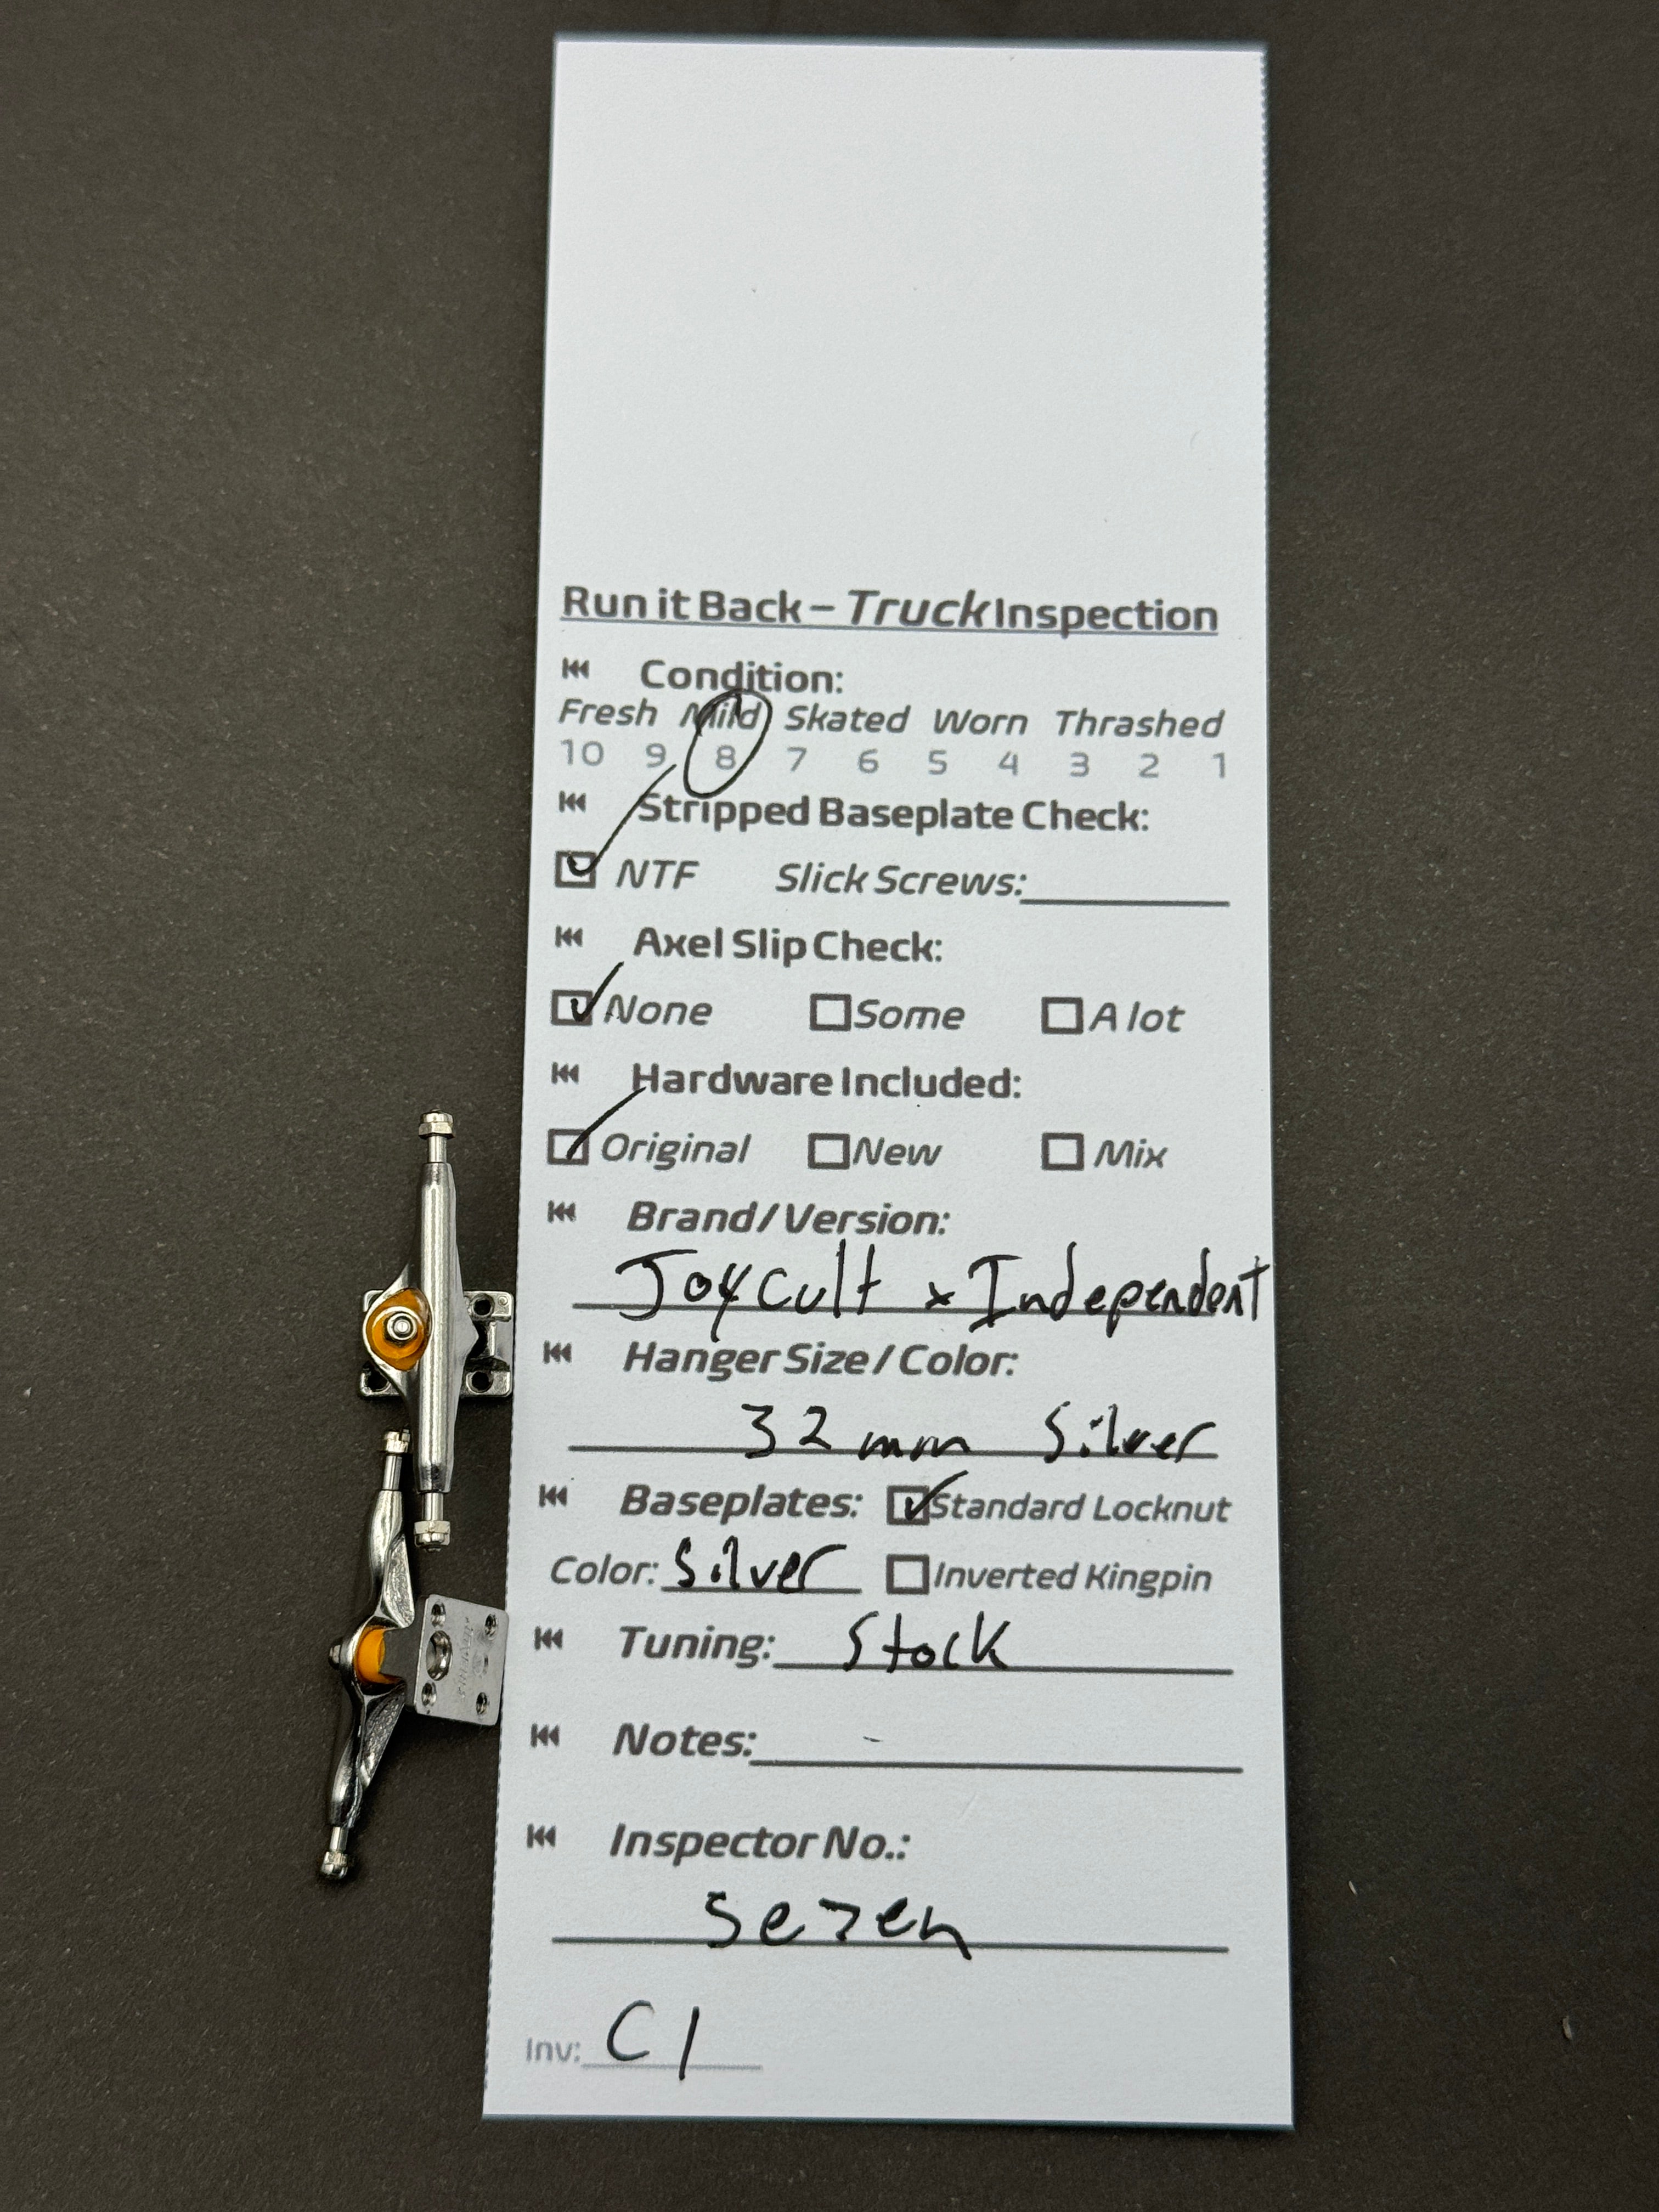 Run it Back – Truck Inspection
Condition:
Fresh Mild Skated Worn Thrashed
10 9 8 7 6 5 4 3 2 1
Stripped Baseplate Check:
NTF Slick Screws:
Axel Slip Check:
None Some A lot
Hardware Included:
Original New Mix
Brand/Version:
Joycult x Independent
Hanger Size / Color:
32mm Silver
Baseplates: Standard Locknut
Color: Silver Inverted Kingpin
Tuning: Stock
Notes:
Inspector No.:
Se7en
Inv: C1